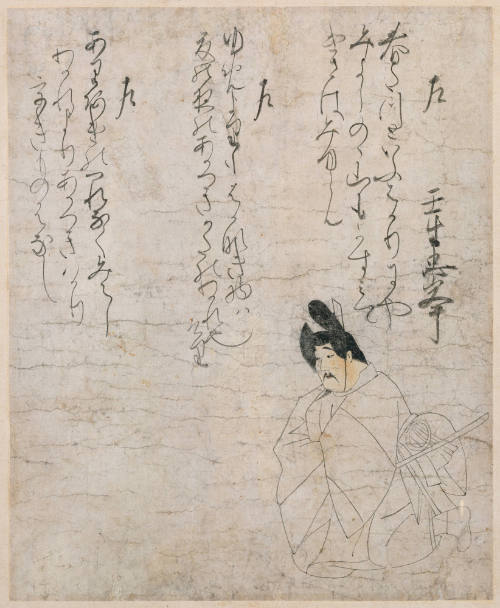 左
壬生忠岑
春たつといふはかりにや
みよしのゝ山もかすみて
けさはみゆらん
左
ゆめよりもはかなきものは
夏の夜のあかつきかたのわかれ也
けり
左
あり明のつれなくみえし
わかれよりあかつきはかり
うきものはなし